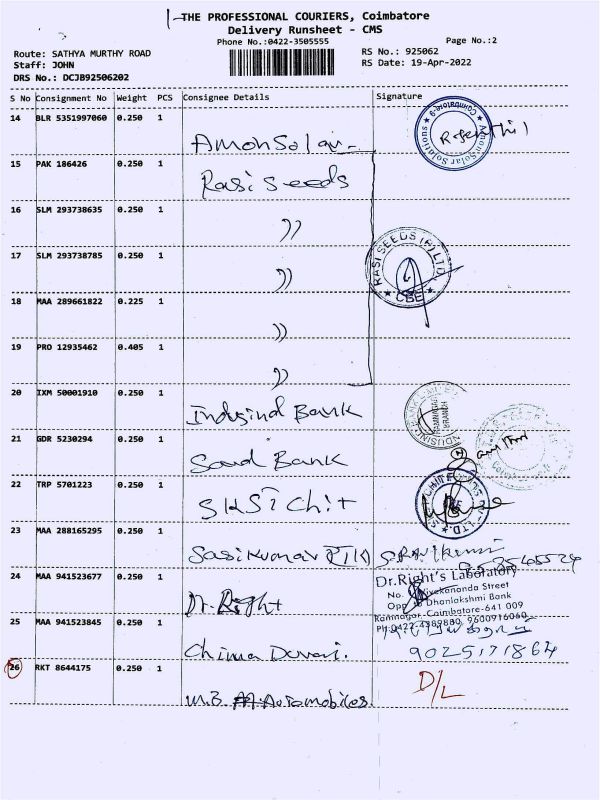 THE PROFESSIONAL COURIERS, Coimbatore
Delivery Runsheet - CMS
Phone No.:0422-3505555
Page No.:2
Route: SATHYA MURTHY ROAD
RS No.: 925062
Staff: JOHN
RS Date: 19-Apr-2022
DRS No.: DCJB92506202
S No Consignment No Weight PCS Consignee Details Signature
14 BLR 5351997060 0.250 1 Amon Solar
R. Senthil
Amon Solar Solutions ★ Coimbatore-9 ★
15 PAK 186426 0.250 1 Rasi Seeds
16 SLM 293738635 0.250 1 ))
17 SLM 293738785 0.250 1 ))
RASI SEEDS (P) LTD. ★ CBE ★
18 MAA 289661822 0.225 1 ))
19 PRO 12935462 0.405 1 ))
20 IXM 50001910 0.250 1 Indusind Bank
BRANCH
21 GDR 5230294 0.250 1 Bank
22 TRP 5701223 0.250 1 SKSI Chit
23 MAA 288165295 0.250 1 Sasikumar
24 MAA 941523677 0.250 1 Dr. Right
Dr.Right's Laboratory
No. Vivekananda Street
Opp to Dhanlakshmi Bank
Ramnagar, Coimbatore-641 009
Ph:0422-4389880, 9600916060
25 MAA 941523845 0.250 1 Chima Davari.
9025171864
26 RKT 8644175 0.250 1 M.B Automobiles.
D/L